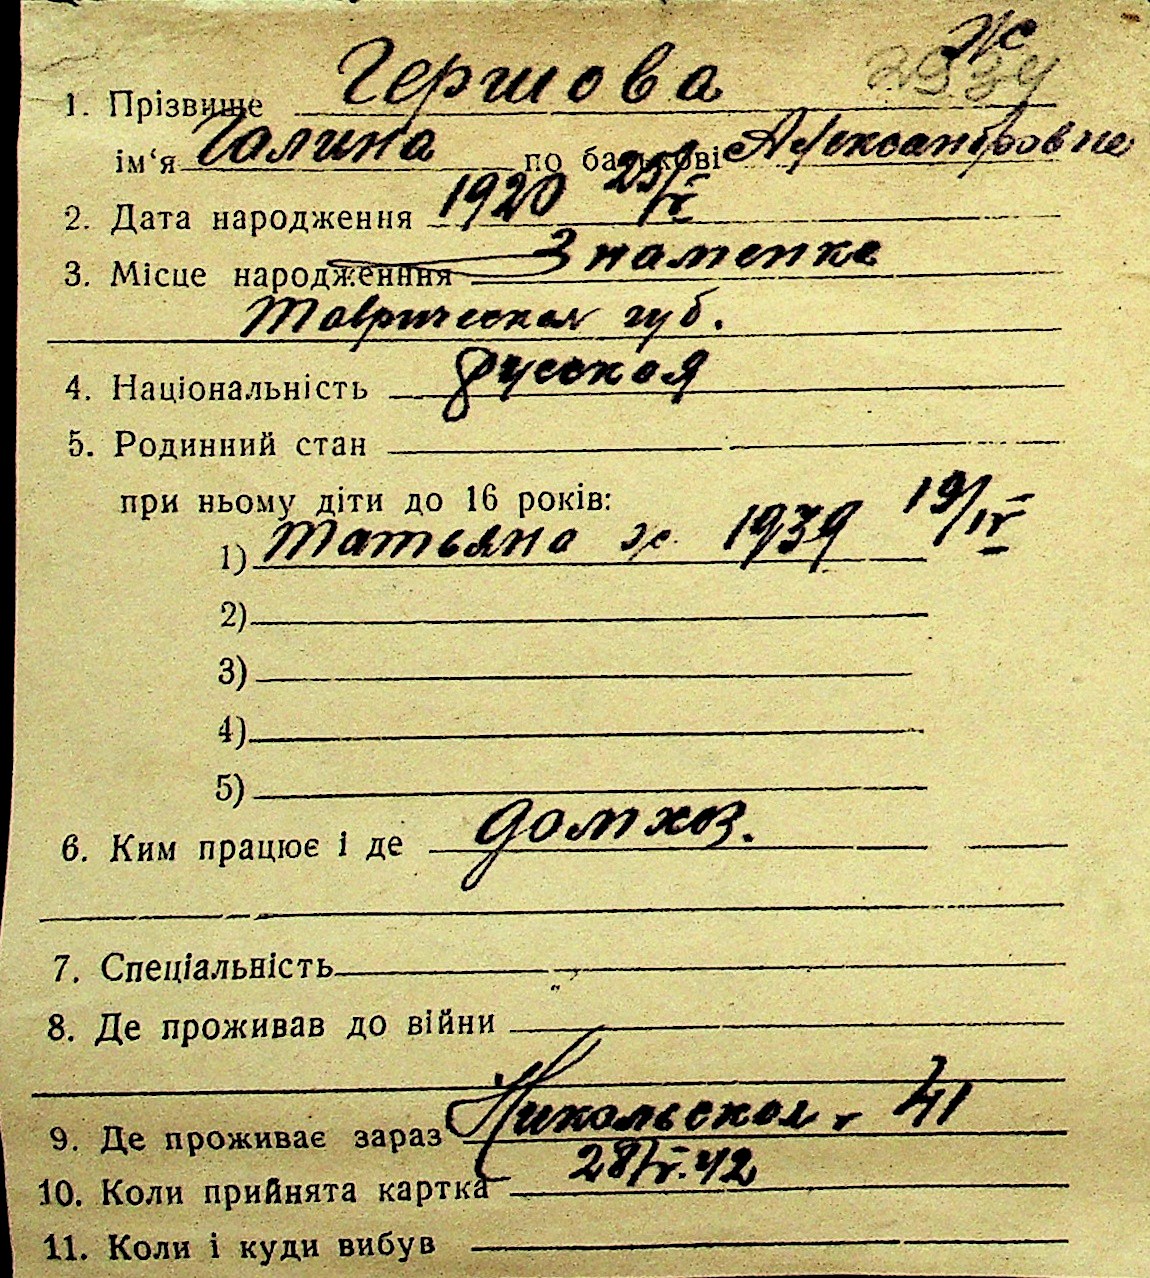 Ж
2934
1. Прізвище Гершова
ім‘я Галина по батькові Александровне
2. Дата народження 1920 23/V
3. Місце народженння Знаменке
Таврическая губ.
4. Національність русская
5. Родинний стан
при ньому діти до 16 років:
1) Татьяна ж. 1939 19/IV
2)
3)
4)
5)
6. Ким працює і де домхоз.
7. Спеціальність
8. Де проживав до війни
9. Де проживає зараз Никольская 41
10. Коли прийнята картка 28/V.42
11. Коли і куди вибув